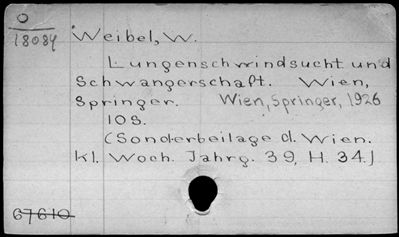 O
18084
Weibel, W.
Lungenschwindsucht und
Schwangerschaft. Wien,
Springer. Wien, Springer, 1926
10 S.
(Sonderbeilage d. Wien.
kl. Woch. Jahrg. 39, H. 34.)
67610